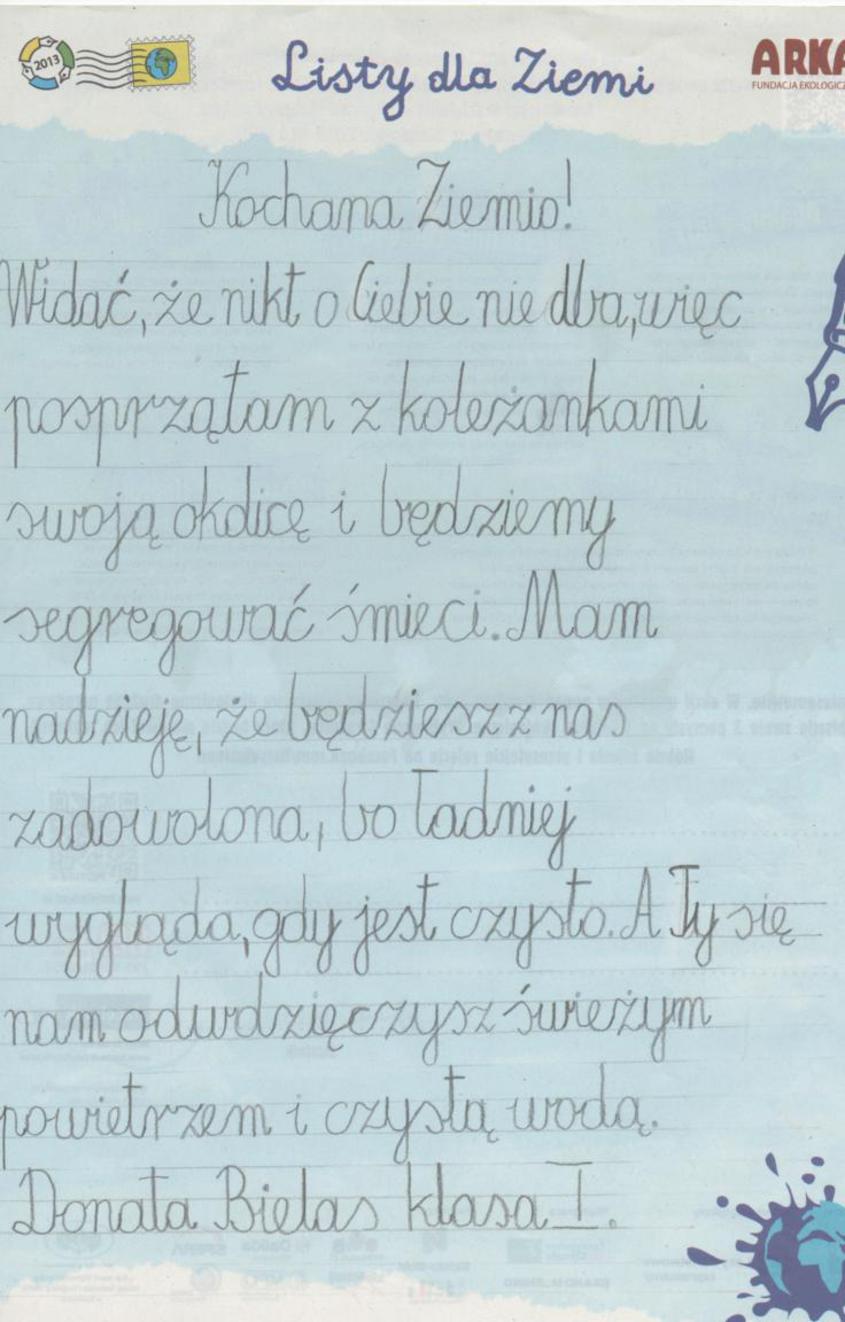 2013
Listy dla Ziemi
ARKA
FUNDACJA EKOLOGICZ
Kochana Ziemio!
Widać, że nikt o Ciebie nie dba, więc
posprzątam z koleżankami
swoją okolicę i będziemy
segregować śmieci. Mam
nadzieję, że będziesz z nas
zadowolona, bo ładniej
wygląda, gdy jest czysto. A Ty się
nam odwdzięczysz świeżym
powietrzem i czystą wodą.
Donata Bielas klasa I.